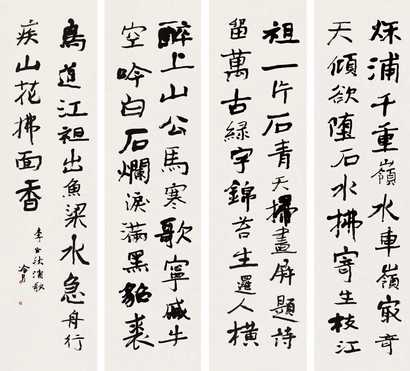 秌浦千重嶺水車嶺冣奇
天傾欲堕石水拂寄生枝江
祖一片石青天掃畫屏題詩
留萬古緑字錦苔生邏人橫
醉上山公馬寒歌寧戚牛
空吟白石爛淚滿黑貂裘
鳥道江祖出魚梁水急舟行
疾山花拂面香
李白秋浦歌